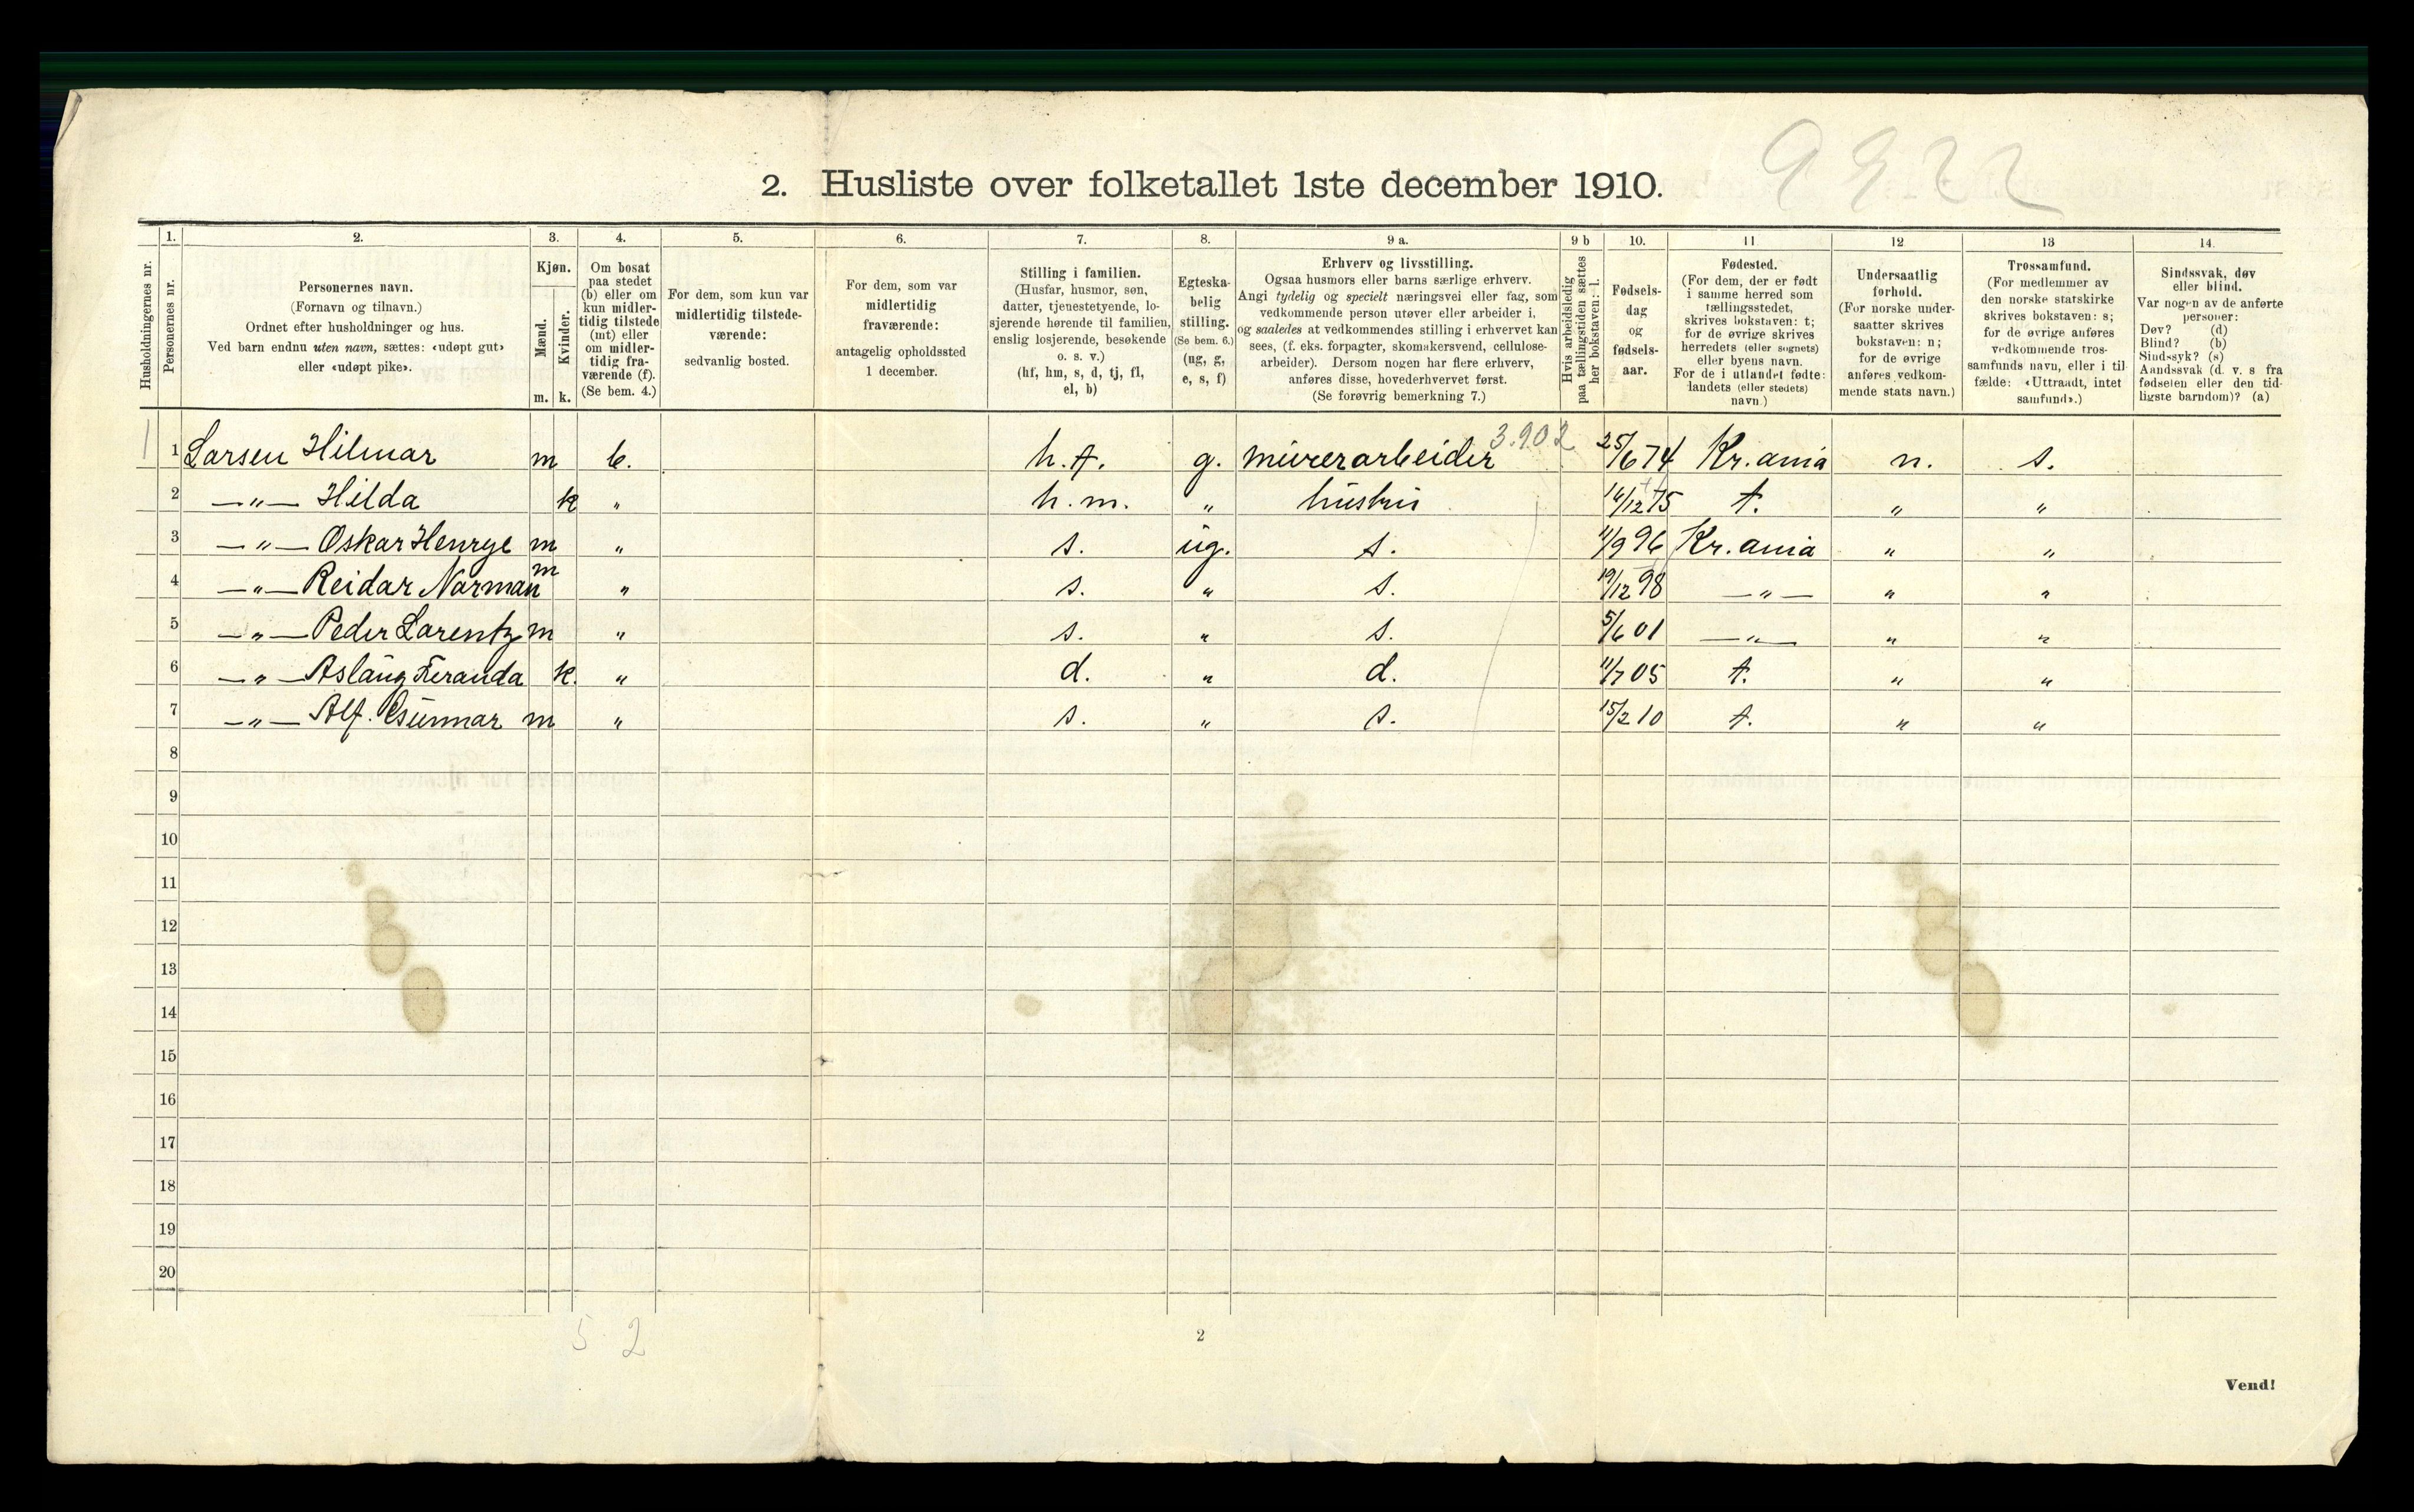 9322
2. Husliste over folketallet 1ste december 1910.
Husholdningernes nr.
1. Personernes nr.
2. Personernes navn.
(Fornavn og tilnavn.)
Ordnet efter husholdninger og hus.
Ved barn endnu uten navn, sættes: «udøpt gut»
eller «udøpt pike».
3. Kjøn.
Mænd. Kvinder.
m. k.
4. Om bosat
paa stedet
(b) eller om
kun midler-
tidig tilstede
(mt) eller
om midler-
tidig fra-
værende (f).
(Se bem. 4.)
5. For dem, som kun var
midlertidig tilstede-
værende:
sedvanlig bosted.
6. For dem, som var
midlertidig
fraværende:
antagelig opholdssted
1 december.
7. Stilling i familien.
(Husfar, husmor, søn,
datter, tjenestetyende, lo-
sjerende hørende til familien,
enslig losjerende, besøkende
o. s. v.)
(hf, hm, s, d, tj, fl,
el, b)
8. Egteska-
belig
stilling.
(Se bem. 6.)
(ug, g,
e, s, f)
9 a. Erhverv og livsstilling.
Ogsaa husmors eller barns særlige erhverv.
Angi tydelig og specielt næringsvei eller fag, som
vedkommende person utøver eller arbeider i,
og saaledes at vedkommendes stilling i erhvervet kan
sees, (f. eks. forpagter, skomakersvend, cellulose-
arbeider). Dersom nogen har flere erhverv,
anføres disse, hovederhvervet først.
(Se forøvrig bemerkning 7.)
9 b Hvis arbeidsledig
paa tællingstiden sættes
her bokstaven: l.
10. Fødsels-
dag
og
fødsels-
aar.
11 Fødested.
(For dem, der er født
i samme herred som
tællingsstedet,
skrives bokstaven: t;
for de øvrige skrives
herredets (eller sognets)
eller byens navn.
For de i utlandet fødte:
landets (eller stedets)
navn.)
12 Undersaatlig
forhold.
(For norske under-
saatter skrives
bokstaven: n;
for de øvrige
anføres vedkom-
mende stats navn.)
13 Trossamfund.
(For medlemmer av
den norske statskirke
skrives bokstaven: s;
for de øvrige anføres
vedkommende tros-
samfunds navn, eller i til-
fælde: «Uttraadt, intet
samfund».)
14. Sindssvak, døv
eller blind.
Var nogen av de anførte
personer:
Døv? (d)
Blind? (b)
Sindssyk? (s)
Aandssvak (d. v. s fra
fødselen eller den tid-
ligste barndom)? (a)
1 1 Larsen Hilmar m b. h.f. g. murerarbeider 3.902 25/6 74 Kr.ania n. s.
2 —„— Hilda k „ h.m. „ hustru 14/12 75 t. „ „
3 —„— Oskar Henrye m „ s. ug. s. 11/9 96 Kr.ania „ „
4 —„— Reidar Norman m „ s. „ s. 19/12 98 —„— „ „
5 —„— Peder Larentz m „ s. „ s. 5/6 01 —„— „ „
6 —„— Aslaug Feranda k. „ d. „ d. 11/7 05 t. „ „
7 —„— Alf. Gunnar m „ s. „ s. 15/2 10 t. „ „
8
9
10
11
12
13
14
15
16
17
18
19
20
5 2
2
Vend!